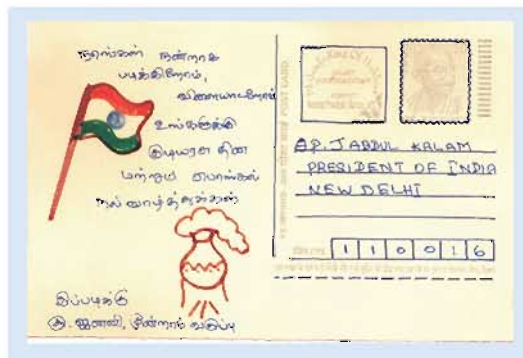 நாங்கள் நன்றாக
படிக்கிறோம்,
விளையாடறோம்
உங்களுக்கு
குடியரசு தின
மற்றும் பொங்கல்
நல் வாழ்த்துக்கள்
இப்படிக்கு
மூன்றாம் வகுப்பு
POST CARD
A.P.J ABDUL KALAM
PRESIDENT OF INDIA
NEW DELHI
110016